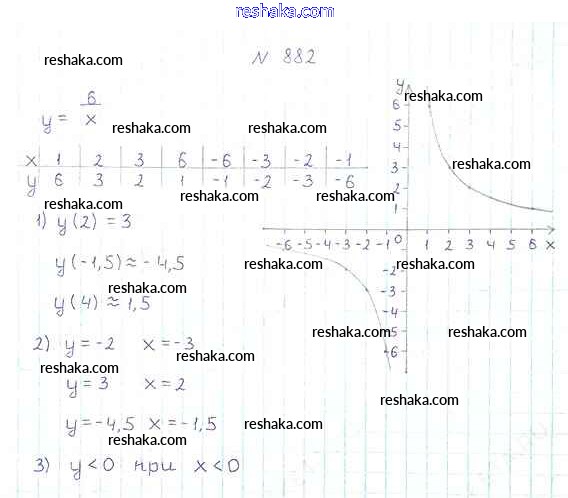 reshaka.com
reshaka.com
N 882
y = 6/x
reshaka.com
reshaka.com reshaka.com
x 1 2 3 6 -6 -3 -2 -1
y 6 3 2 1 -1 -2 -3 -6
reshaka.com reshaka.com
1) y(2) = 3
y(-1,5) ≈ -4,5
reshaka.com
y(4) ≈ 1,5
2) y = -2 x = -3
reshaka.com
reshaka.com
y = 3 x = 2
y = -4,5 x = -1,5
reshaka.com
reshaka.com
3) y < 0 при x < 0
y
reshaka.com
6
5
4
3
reshaka.com
2
1
-6 -5 -4 -3 -2 -1 0 1 2 3 4 5 6 x
reshaka.com
-2
reshaka.com
-3
-4
reshaka.com
-5
reshaka.com
-6
reshaka.com